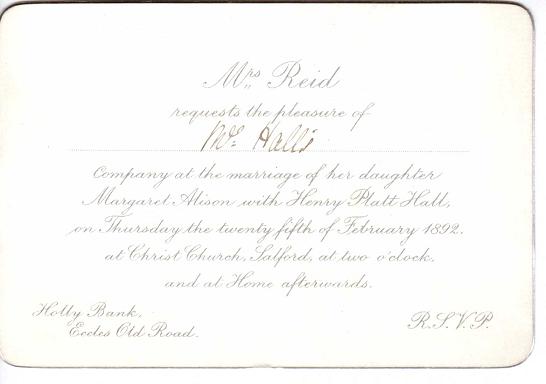 Mrs Reid
requests the pleasure of
Mr. Hall's
Company at the marriage of her daughter
Margaret Alison with Henry Platt Hall,
on Thursday the twenty fifth of February 1892.
at Christ Church, Salford, at two o'clock.
and at Home afterwards.
Holly Bank,
Eccles Old Road.
R.S.V.P.